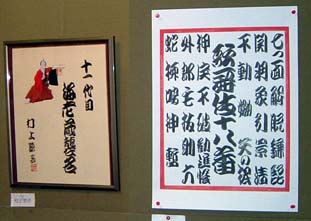 十一代目
海老蔵
七つ面 解脱 鎌髭
関羽 象引 景清
不動 嫐 矢の根
歌舞伎十八番
押戻 不破 勧進帳
外郎売 毛抜 助六
蛇柳 鳴神 暫